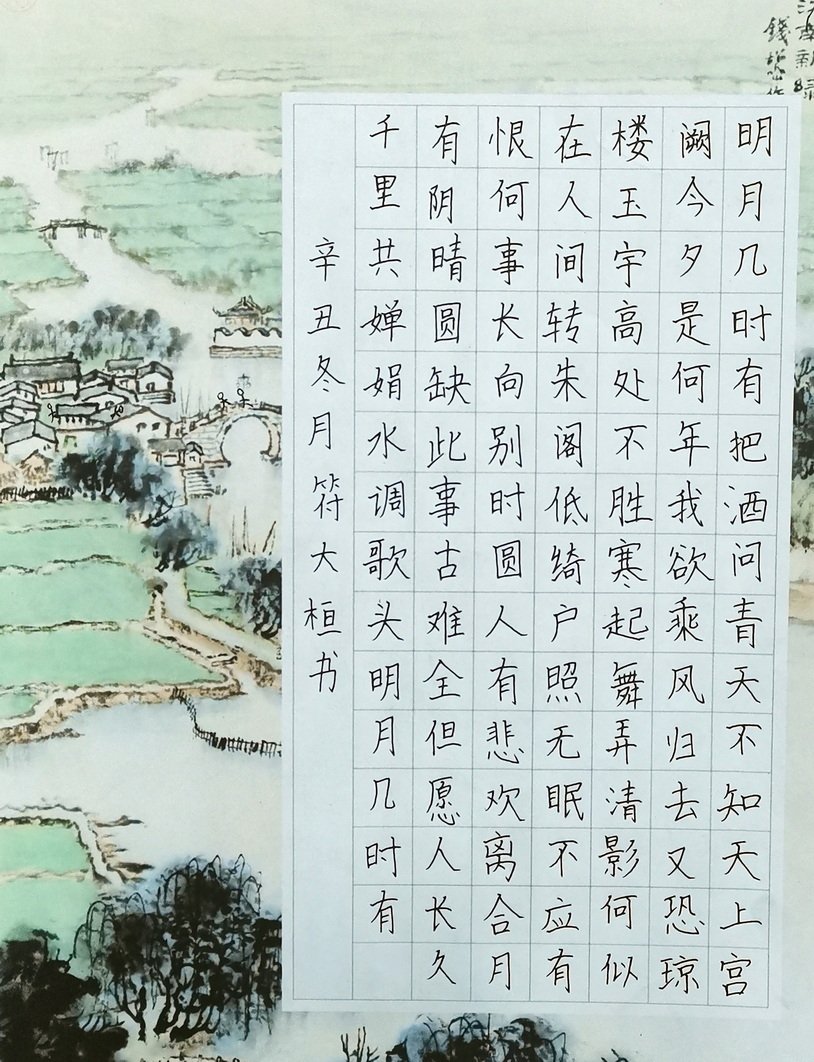 江南新绿
錢松喦作
明月几时有把酒问青天不知天上宫
阙今夕是何年我欲乘风归去又恐琼
楼玉宇高处不胜寒起舞弄清影何似
在人间转朱阁低绮户照无眠不应有
恨何事长向别时圆人有悲欢离合月
有阴晴圆缺此事古难全但愿人长久
千里共婵娟水调歌头明月几时有
辛丑冬月符大桓书